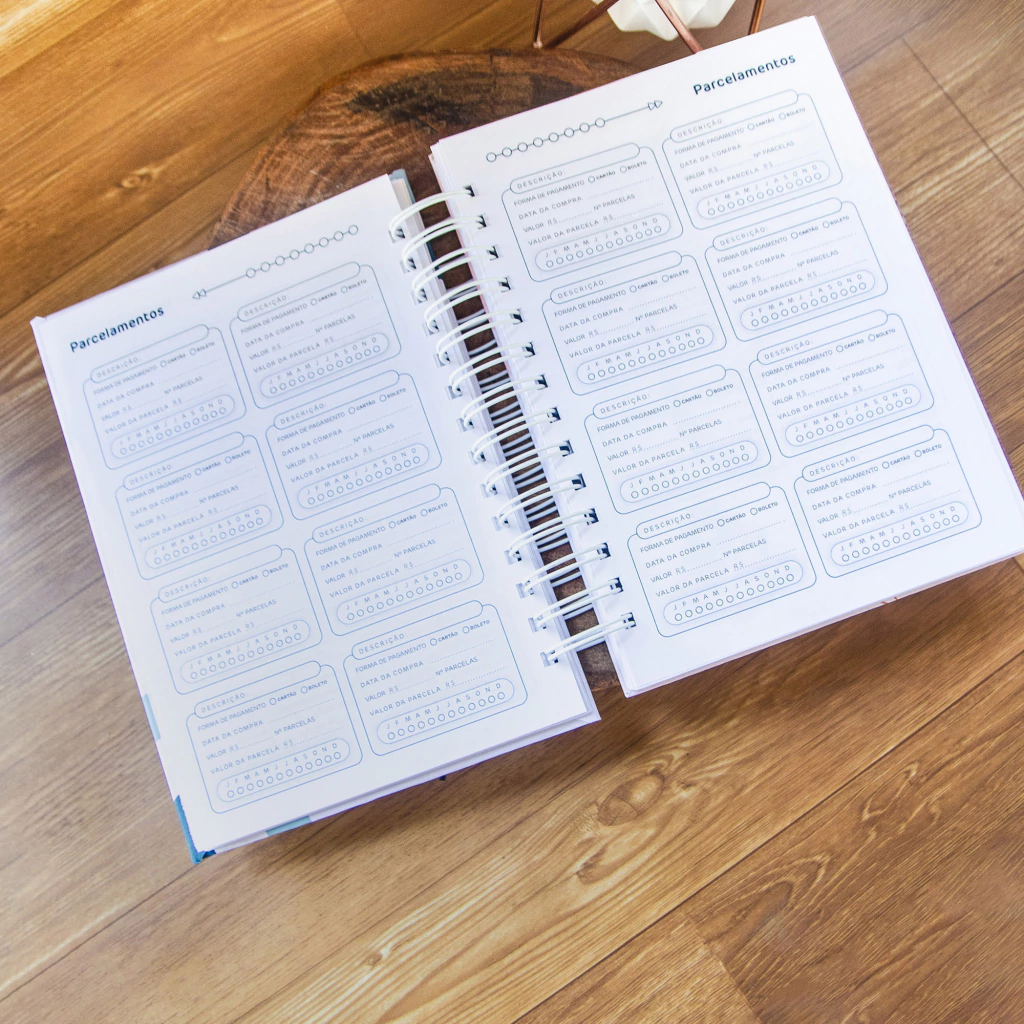 Parcelamentos
DESCRIÇÃO:
FORMA DE PAGAMENTO CARTÃO BOLETO
DATA DA COMPRA
VALOR R$ Nº PARCELAS
VALOR DA PARCELA R$
J F M A M J J A S O N D
DESCRIÇÃO:
FORMA DE PAGAMENTO CARTÃO BOLETO
DATA DA COMPRA
VALOR R$ Nº PARCELAS
VALOR DA PARCELA R$
J F M A M J J A S O N D
DESCRIÇÃO:
FORMA DE PAGAMENTO CARTÃO BOLETO
DATA DA COMPRA
VALOR R$ Nº PARCELAS
VALOR DA PARCELA R$
J F M A M J J A S O N D
DESCRIÇÃO:
FORMA DE PAGAMENTO CARTÃO BOLETO
DATA DA COMPRA
VALOR R$ Nº PARCELAS
VALOR DA PARCELA R$
J F M A M J J A S O N D
DESCRIÇÃO:
FORMA DE PAGAMENTO CARTÃO BOLETO
DATA DA COMPRA
VALOR R$ Nº PARCELAS
VALOR DA PARCELA R$
J F M A M J J A S O N D
DESCRIÇÃO:
FORMA DE PAGAMENTO CARTÃO BOLETO
DATA DA COMPRA
VALOR R$ Nº PARCELAS
VALOR DA PARCELA R$
J F M A M J J A S O N D
DESCRIÇÃO:
FORMA DE PAGAMENTO CARTÃO BOLETO
DATA DA COMPRA
VALOR R$ Nº PARCELAS
VALOR DA PARCELA R$
J F M A M J J A S O N D
DESCRIÇÃO:
FORMA DE PAGAMENTO CARTÃO BOLETO
DATA DA COMPRA
VALOR R$ Nº PARCELAS
VALOR DA PARCELA R$
J F M A M J J A S O N D
Parcelamentos
DESCRIÇÃO:
FORMA DE PAGAMENTO CARTÃO BOLETO
DATA DA COMPRA
VALOR R$ Nº PARCELAS
VALOR DA PARCELA R$
J F M A M J J A S O N D
DESCRIÇÃO:
FORMA DE PAGAMENTO CARTÃO BOLETO
DATA DA COMPRA
VALOR R$ Nº PARCELAS
VALOR DA PARCELA R$
J F M A M J J A S O N D
DESCRIÇÃO:
FORMA DE PAGAMENTO CARTÃO BOLETO
DATA DA COMPRA
VALOR R$ Nº PARCELAS
VALOR DA PARCELA R$
J F M A M J J A S O N D
DESCRIÇÃO:
FORMA DE PAGAMENTO CARTÃO BOLETO
DATA DA COMPRA
VALOR R$ Nº PARCELAS
VALOR DA PARCELA R$
J F M A M J J A S O N D
DESCRIÇÃO:
FORMA DE PAGAMENTO CARTÃO BOLETO
DATA DA COMPRA
VALOR R$ Nº PARCELAS
VALOR DA PARCELA R$
J F M A M J J A S O N D
DESCRIÇÃO:
FORMA DE PAGAMENTO CARTÃO BOLETO
DATA DA COMPRA
VALOR R$ Nº PARCELAS
VALOR DA PARCELA R$
J F M A M J J A S O N D
DESCRIÇÃO:
FORMA DE PAGAMENTO CARTÃO BOLETO
DATA DA COMPRA
VALOR R$ Nº PARCELAS
VALOR DA PARCELA R$
J F M A M J J A S O N D
DESCRIÇÃO:
FORMA DE PAGAMENTO CARTÃO BOLETO
DATA DA COMPRA
VALOR R$ Nº PARCELAS
VALOR DA PARCELA R$
J F M A M J J A S O N D